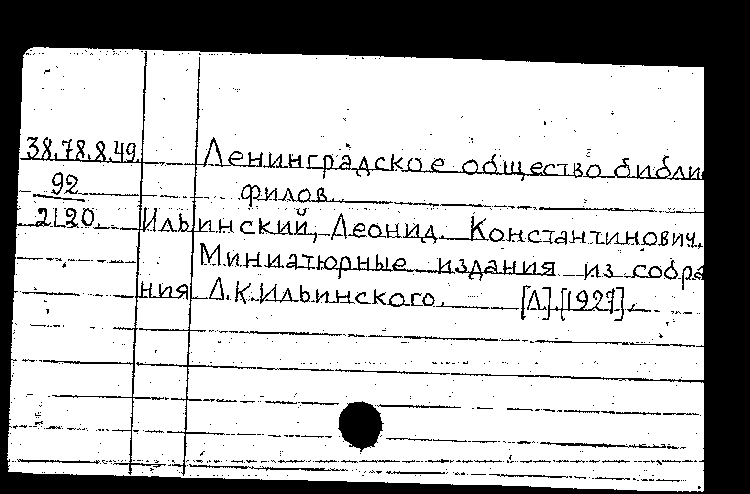 38.78.8.49.
92
2120.
Ленинградское общество библи
филов.
Ильинский, Леонид Константинович.
Миниатюрные издания из собра
ния Л.К.Ильинского. [Л].[1927].